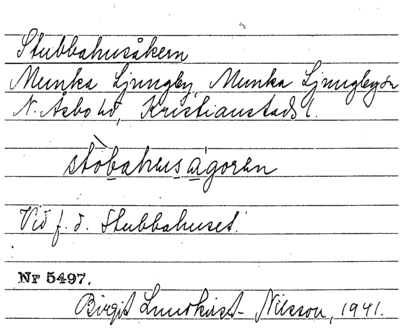 Stubbahusåkern
Munka Ljungby, Munka Ljungby sn
N. Åsbo hd, Kristianstads l.
stòbahus ágoren
Vid f. d. Stubbahuset.
Nr 5497.
Birgit Lundkvist-Nilsson, 1941.